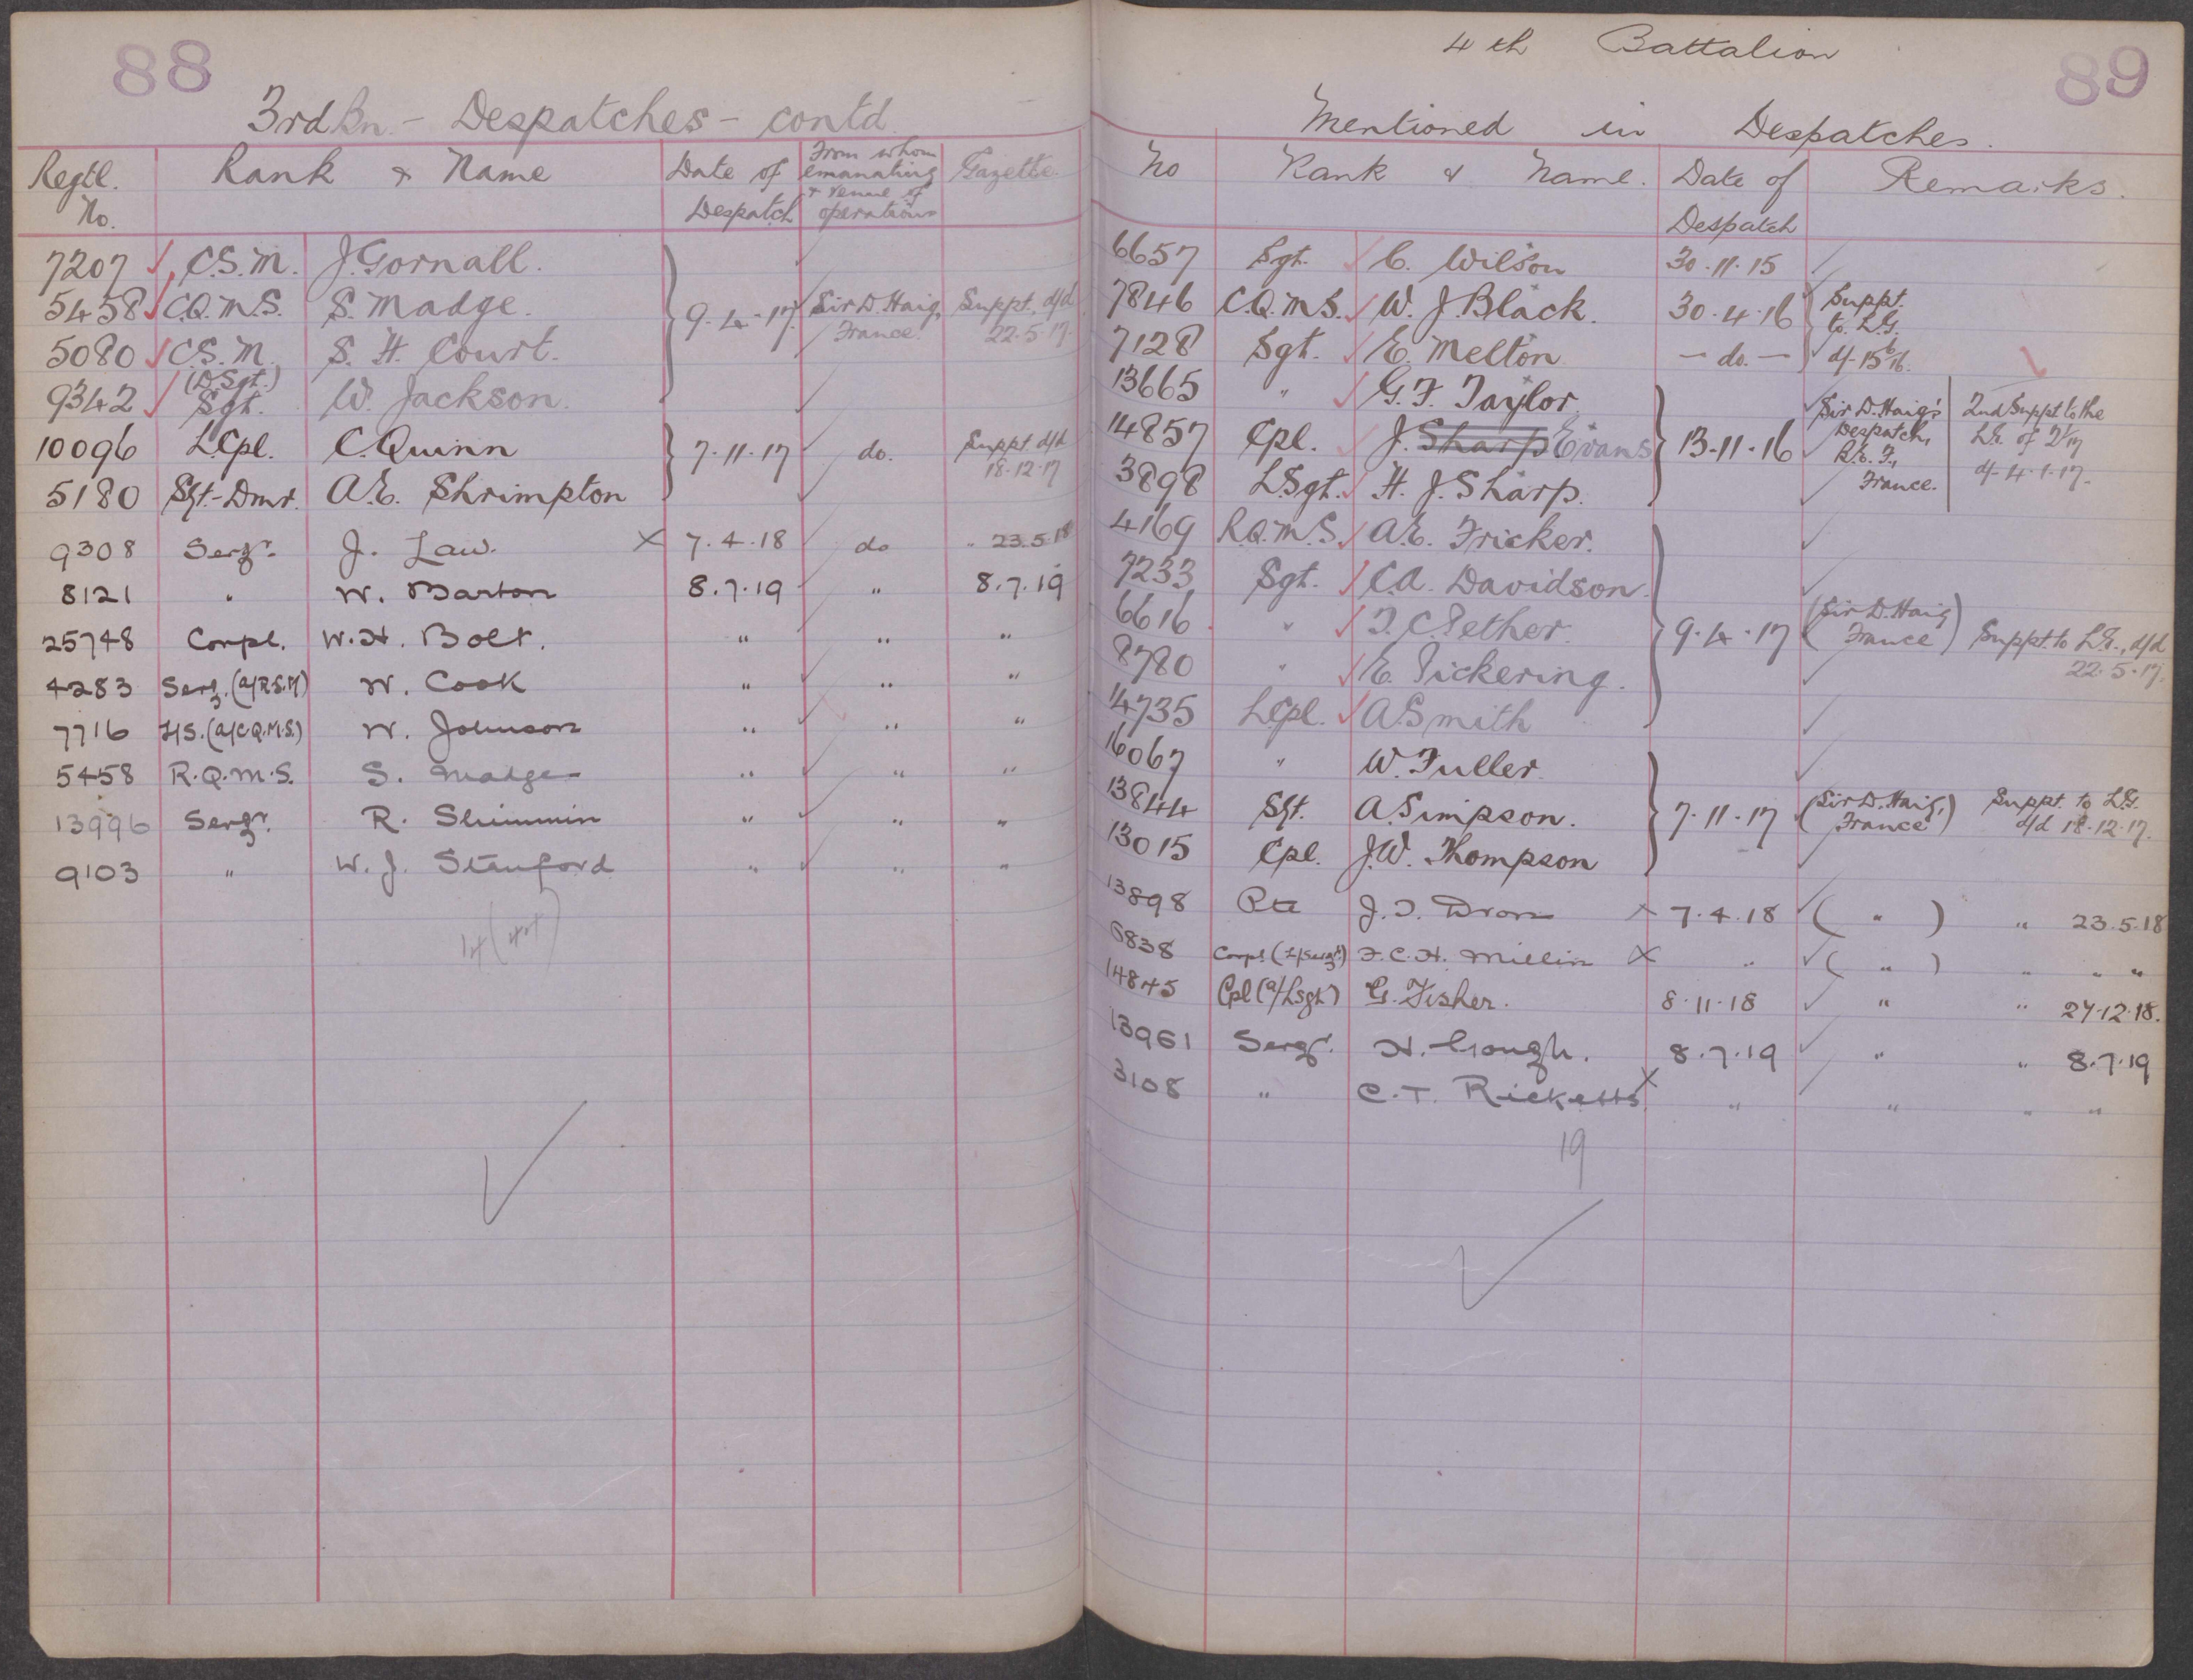 88
3rd Bn. - Despatches - contd
Regtl. No. Rank & Name Date of Despatch From whom emanating & venue of operations Gazette
7207 C.S.M. J. Gornall.
5458 C.Q.M.S. S. Madge. 9.4.17. Sir D. Haig, France. Suppt. d/d 22.5.17.
5080 C.S.M. S. H. Court.
9342 (D.Sgt.) Sgt. W. Jackson.
10096 L.Cpl. C. Quinn 7.11.17 do. Suppt d/d 18.12.17
5180 Sgt.-Dmr. A.E. Shrimpton
9308 Sergt. J. Law. X 7.4.18 do " 23.5.18
8121 " W. Barton 8.7.19 " 8.7.19
25748 Corpl. W.H. Bolt. " " "
4283 Serg. (a/R.S.M) W. Cook " " "
7716 L/S. (a/C.Q.M.S.) W. Johnson " " "
5458 R.Q.M.S. S. Madge " " "
13996 Sergt. R. Shimmin " " "
9103 " W. J. Stanford " " "
14
89
4th Battalion
Mentioned in Despatches.
No Rank & Name. Date of Despatch Remarks.
6657 Sgt. C. Wilson 30.11.15
7846 C.Q.M.S. W. J. Black. 30.4.16 Suppt. to L.G.
7128 Sgt. E. Melton - do. - d/- 15/6/16.
13665 " G. F. Taylor Sir D. Haig's Despatch, B.E.F., France. 2nd Suppt to the L.G. of 2/1/17 d/- 4.1.17.
14857 Cpl. J. Sharp Evans 13.11.16
3898 L.Sgt. H. J. Sharp.
4169 R.Q.M.S. A.E. Fricker.
7233 Sgt. C.A. Davidson.
6616 " T. C. Pether. 9.4.17 (Sir D. Haig France) Suppt. to L.G., d/d 22.5.17.
8780 " E. Pickering.
14735 L.Cpl. A. Smith
16067 " W. Fuller.
13844 Sgt. A. Simpson. 7.11.17 (Sir D. Haig, France) Suppt. to L.G. d/d 18.12.17.
13015 Cpl. J.W. Thompson
13898 Pte J. T. Dron X 7.4.18 ( " ) " 23.5.18
6838 Corpl. (L/Sergt.) F.C.H. Millin X " ( " ) " " "
14845 Cpl (a/LSgt) G. Fisher. 8.11.18 " " 27.12.18.
13961 Sergt. H. Gough. 8.7.19 " " 8.7.19
3108 " C.T. Ricketts X " " " "
19